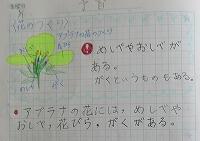 〈花のつくり〉
アブラナの花のつくり
めしべやおしべが
ある。
がくというものもある。
アブラナの花には,めしべや
おしべ,花びら,がくがある。